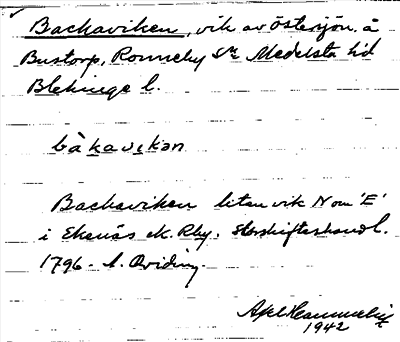 Backaviken, vik av Östersjön å
Bustorp, Ronneby Sn Medelsta hd
Blekinge l.
bàkavikan
Backaviken liten vik N om 'E'
i Ekenäs ek. Rby. storskifteshandl.
1796.
1942